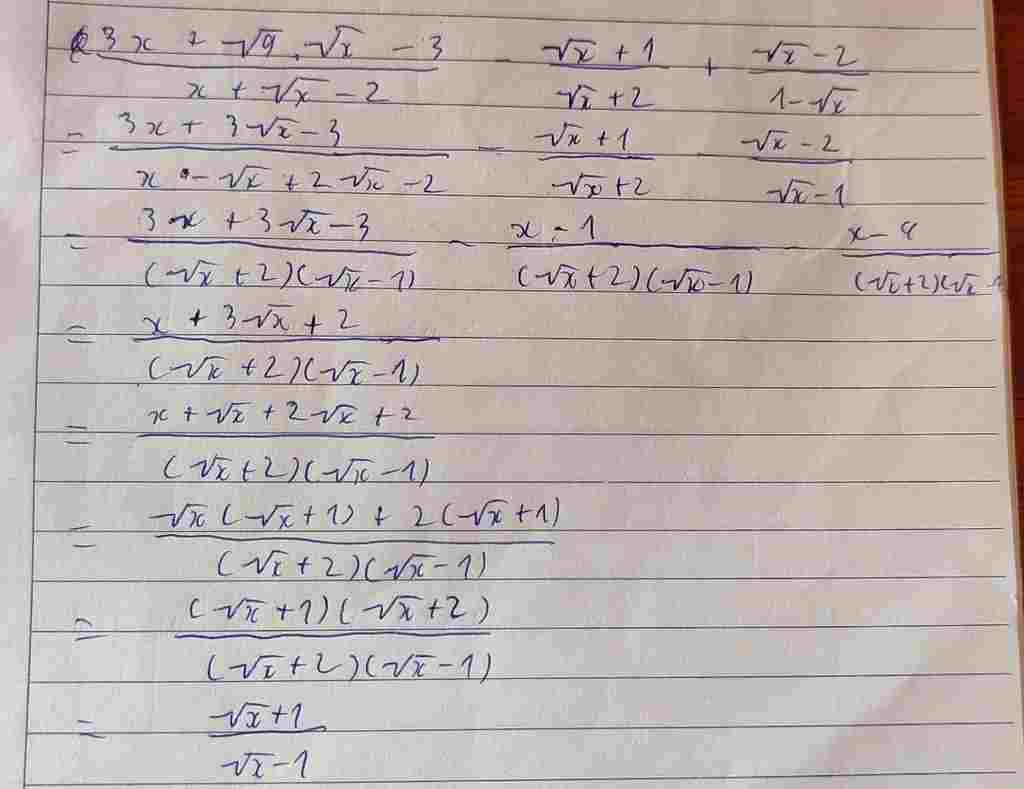 3x + √9.√x - 3 / x + √x - 2 - √x + 1 / √x + 2 + √x - 2 / 1 - √x
= 3x + 3√x - 3 / x - √x + 2√x - 2 - √x + 1 / √x + 2 - √x - 2 / √x - 1
= 3x + 3√x - 3 / (√x + 2)(√x - 1) - x - 1 / (√x + 2)(√x - 1) - x - 4 / (√x + 2)(√x - 1
= x + 3√x + 2 / (√x + 2)(√x - 1)
= x + √x + 2√x + 2 / (√x + 2)(√x - 1)
= √x(√x + 1) + 2(√x + 1) / (√x + 2)(√x - 1)
= (√x + 1)(√x + 2) / (√x + 2)(√x - 1)
= √x + 1 / √x - 1